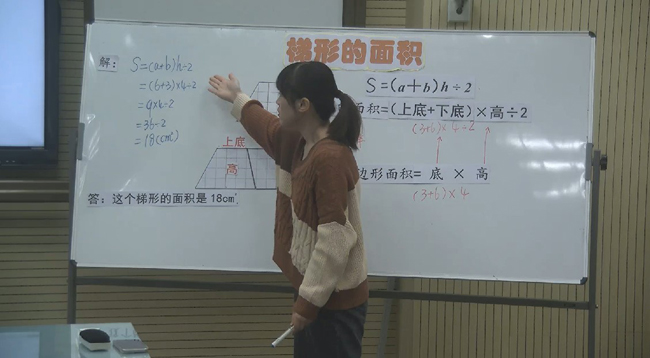 梯形的面积
解：
S=(a+b)h÷2
=(6+3)×4÷2
=9×4÷2
=36÷2
=18(cm²)
上底
高
答：这个梯形的面积是18cm²
S=(a+b)h÷2
面积=(上底+下底)×高÷2
(3+6)×4÷2
边形面积=底×高
(3+6)×4